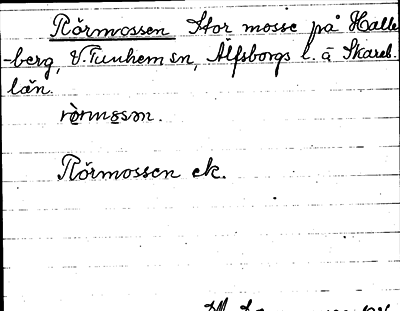 Rörmossen Stor mosse på Halle
-berg, V. Tunhem sn, Älfsborgs l. å Skarab.
län.
Rörmossen ek.